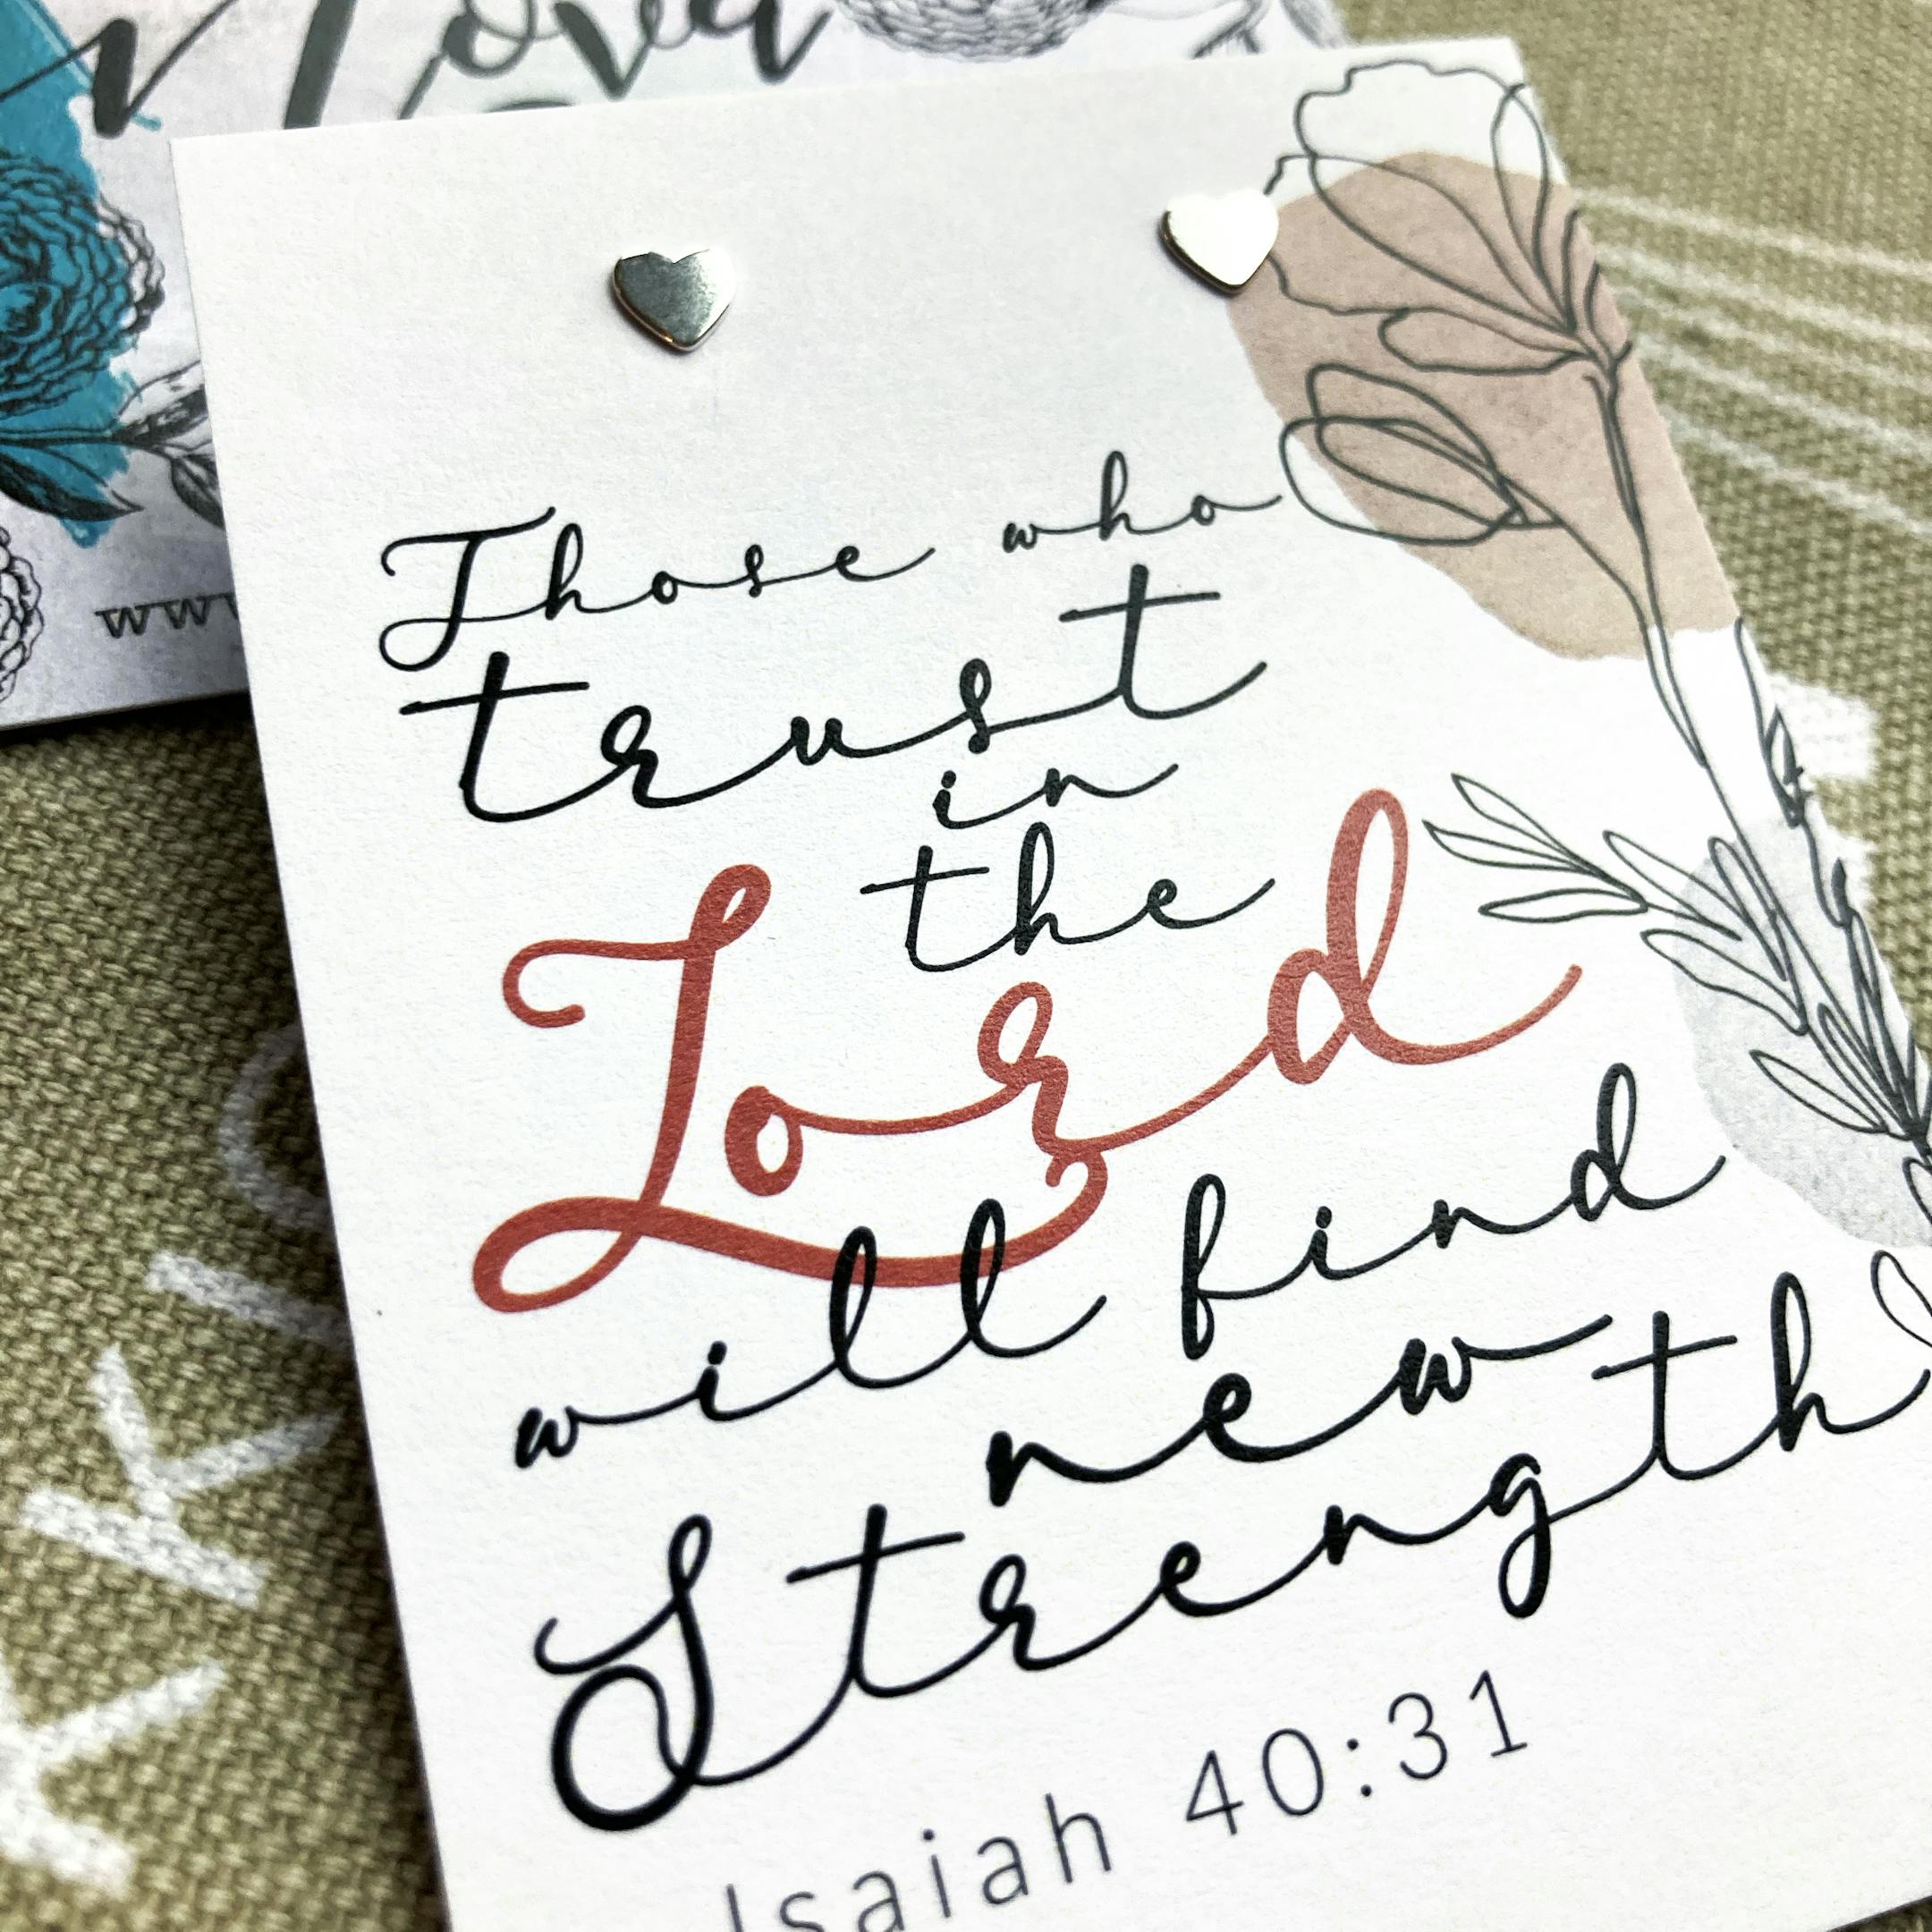 www
Those who
trust
in
the
Lord
will find
new
Strength
Isaiah 40:31